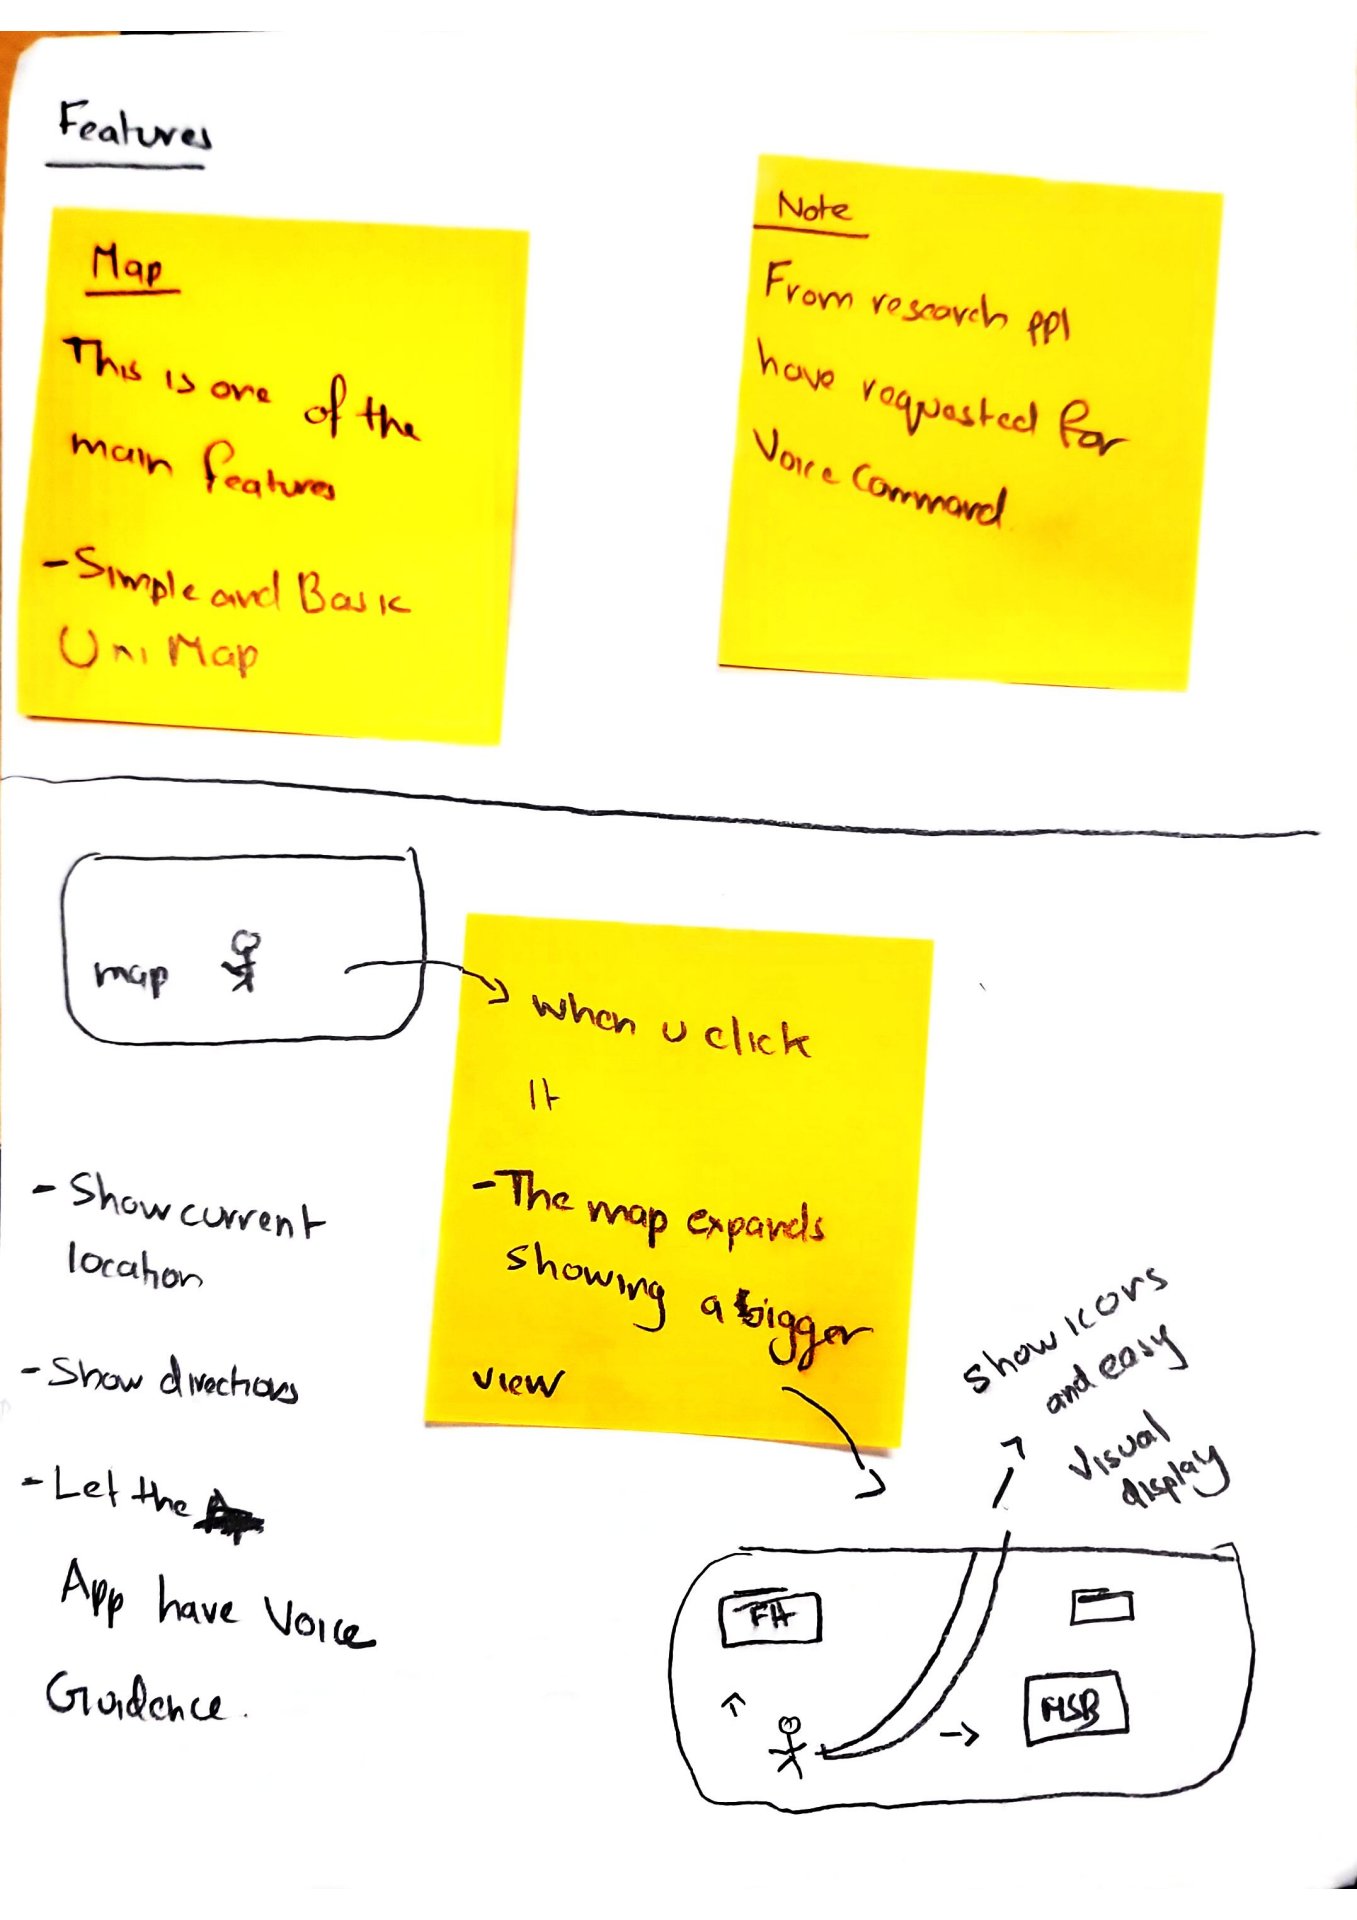 Features
Map
This is one of the
main features
- Simple and Basic
Uni Map
Note
From research ppl
have requested for
Voice Command
map
when u click
It
- The map expands
showing a bigger
view
- Show current
location
- Show directions
- Let the
App have Voice
Guidence.
show icons
and easy
visual
display
FH
MSB